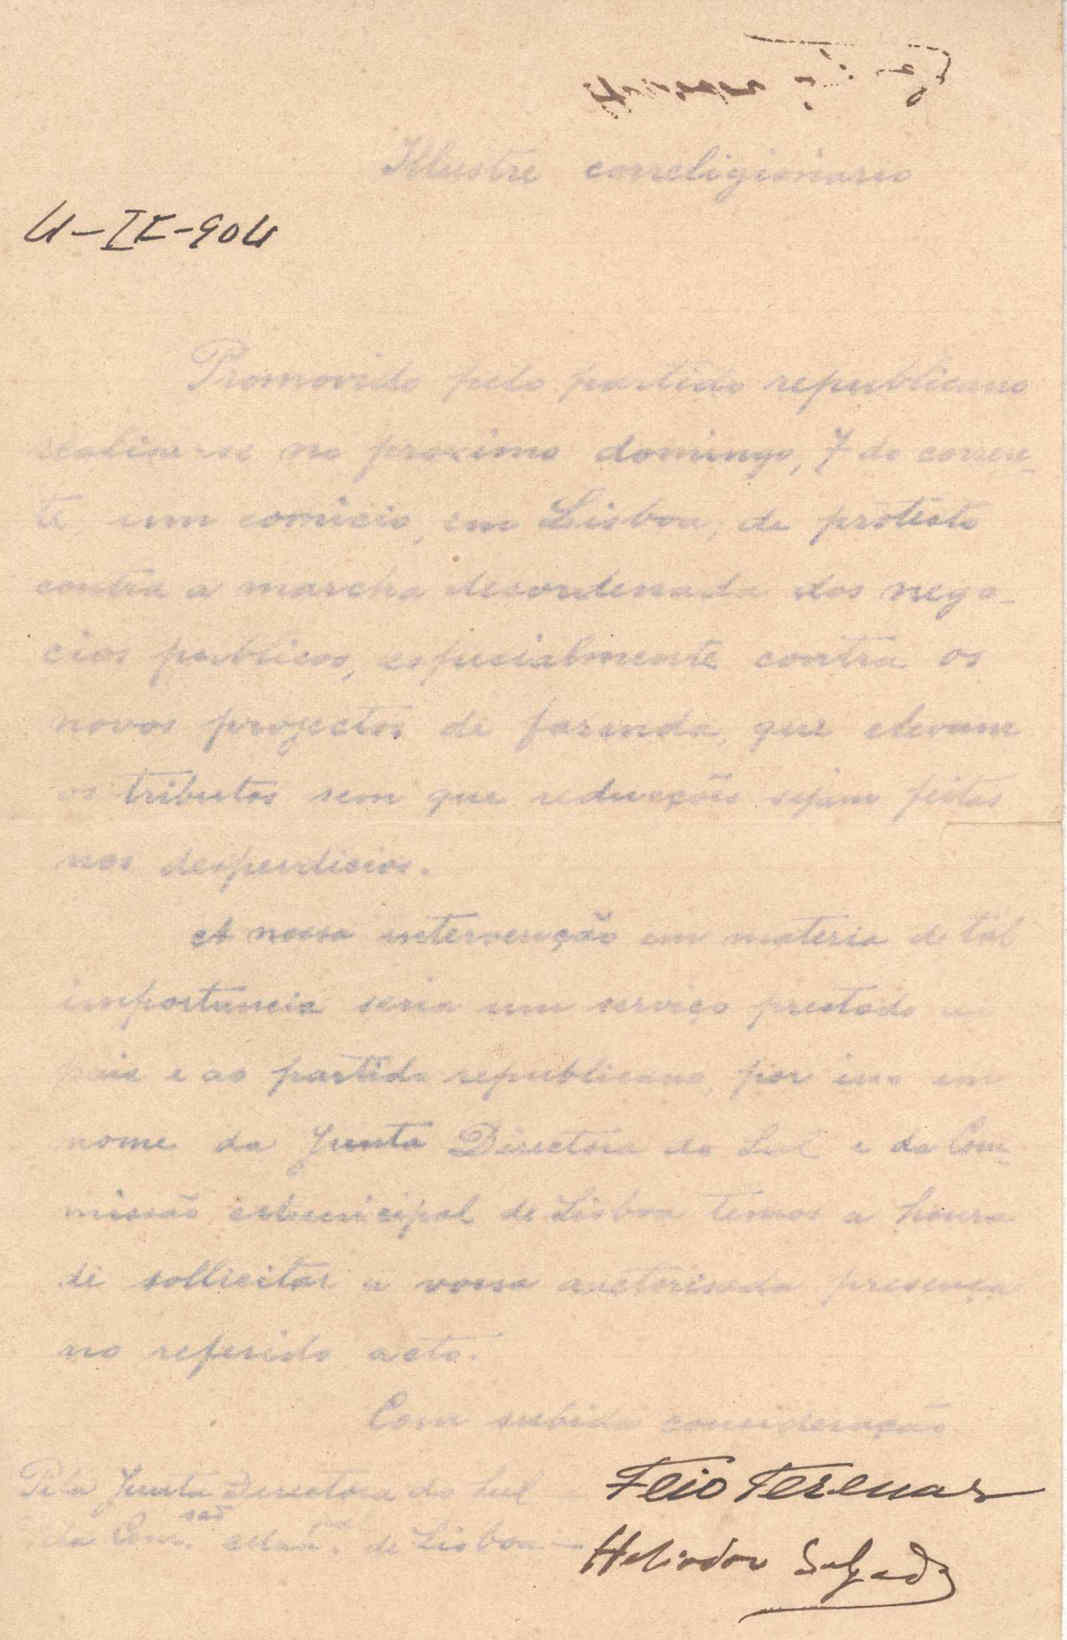 Illustre correligionario
4-II-904
Promovido pelo partido republicano
realisa-se no proximo domingo, 7 do corren-
te um comicio, em Lisboa, de protesto
contra a marcha desordenada dos nego-
cios publicos, especialmente contra os
novos projectos de fazenda, que elevam
os tributos sem que reducções sejam feitas
nos desperdicios.
A nossa intervenção em materia de tal
importancia seria um serviço prestado ao
paiz e ao partido republicano, por isso em
nome da Junta Directora do Sul e da Com-
missão Municipal de Lisboa temos a honra
de sollicitar a vossa auctorisada presença
no referido acto.
Com subida consideração
Pela Junta Directora do Sul Feio Terenas
da Com.são Mun.al de Lisboa — Heliodoro Salgado